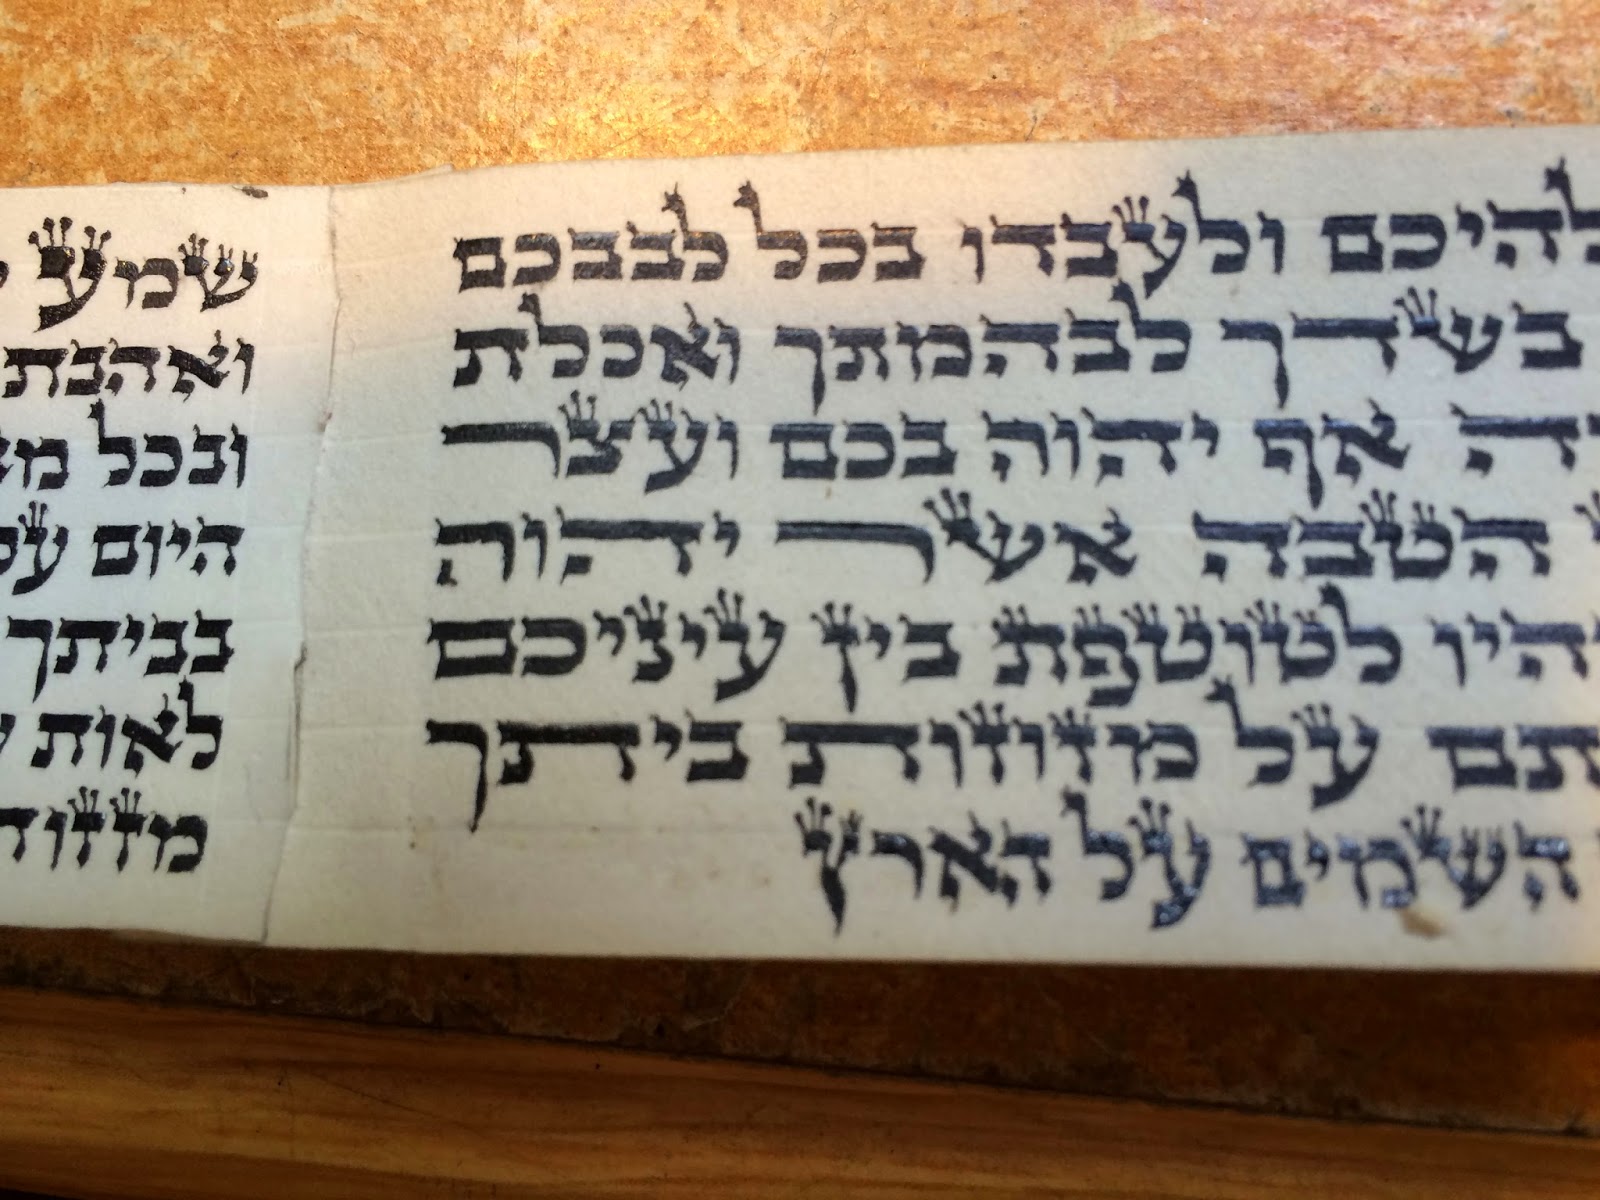 להיכם ולעבדו בכל לבבכם
בשדך לבהמתך ואכלת
רה אף יהוה בכם ועצר
הטבה אשר יהוה
היו לטוטפת בין עיניכם
תם על מזוזות ביתך
השמים על הארץ
שמע
ואהבת
ובכל
היום על
בביתך
לאות
מזזות